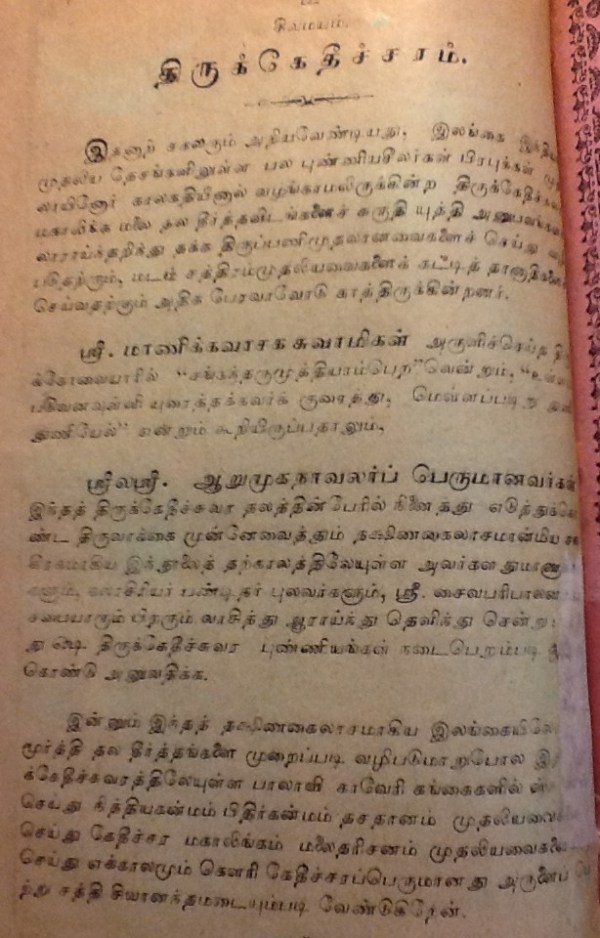 சிவமயம்.
திருக்கேதீச்சரம்.
இதனாற் சகலரும் அறியவேண்டியது, இலங்கை இந்திய
முதலிய தேசங்களிலுள்ள பல புண்ணியசீலர்கள் பிரபுக்கள்
லாயினோர் காலகதியினால் வழங்காமலிருக்கின்ற திருக்கேதீச்சர
மகாலிங்க மலை தல தீர்த்தவிடங்களைச் சுருதி யுத்தி அனுபவங்க
லாராய்ந்தறிந்து தக்க திருப்பணிமுதலானவைகளைச் செய்து
படுதற்கும், மடம் சத்திரம்முதலியவைகளைக் கட்டித் தானாதிகளை
செய்வதற்கும் அதிக பேரவாவோடு காத்திருக்கின்றனர்.
ஸ்ரீ. மாணிக்கவாசகசுவாமிகள் அருளிச்செய்த
க்கோவையாரில் “சங்கந்தருமுத்தியாம்பெற”வென்றும், “உள்ள
யுரைத்தக்கவர்க் குரைத்து, மெள்ளப்படிறு
துணியேல்” என்றும் கூறியிருப்பதாலும்,
ஸ்ரீலஸ்ரீ. ஆறுமுகநாவலர்ப் பெருமானவர்கள்
இந்தத் திருக்கேதீச்சுவர தலத்தின்பேரில் நினைத்து எடுத்துக்கொ
ண்ட திருவாக்கை முன்னேவைத்தும் தக்ஷிணகைலாசமான்மிய
கிரகமாகிய இந்நூலைத் தற்காலத்திலேயுள்ள அவர்களதுமாணா
களும், பண்டிதர் புலவர்களும், ஸ்ரீ. சைவபரிபாலன
சபையாரும் பிறரும் வாசித்து ஆராய்ந்து தெளிந்து சென்று
து ஷெ திருக்கேதீச்சுவர புண்ணியங்கள் நடைபெறும்படி
கொண்டு அனுவதிக்க.
இன்னும் இந்தத் தக்ஷிணகைலாசமாகிய இலங்கையிலே
மூர்த்தி தல தீர்த்தங்களை முறைப்படி வழிபடுமாறுபோல
க்கேதீச்சுவரத்திலேயுள்ள பாலாவி காவேரி கங்கைகளில்
செய்து நித்தியகன்மம் பிதிர்கன்மம் தசதானம் முதலியவை
செய்து கேதீச்சர மகாலிங்கம் மலைதரிசனம் முதலியவைகளை
செய்து எக்காலமும் கௌரி கேதீச்சரப்பெருமானது அருளைப் பெ
ற்று சத்தி சிவானந்தமடையும்படி வேண்டுகிறேன்.